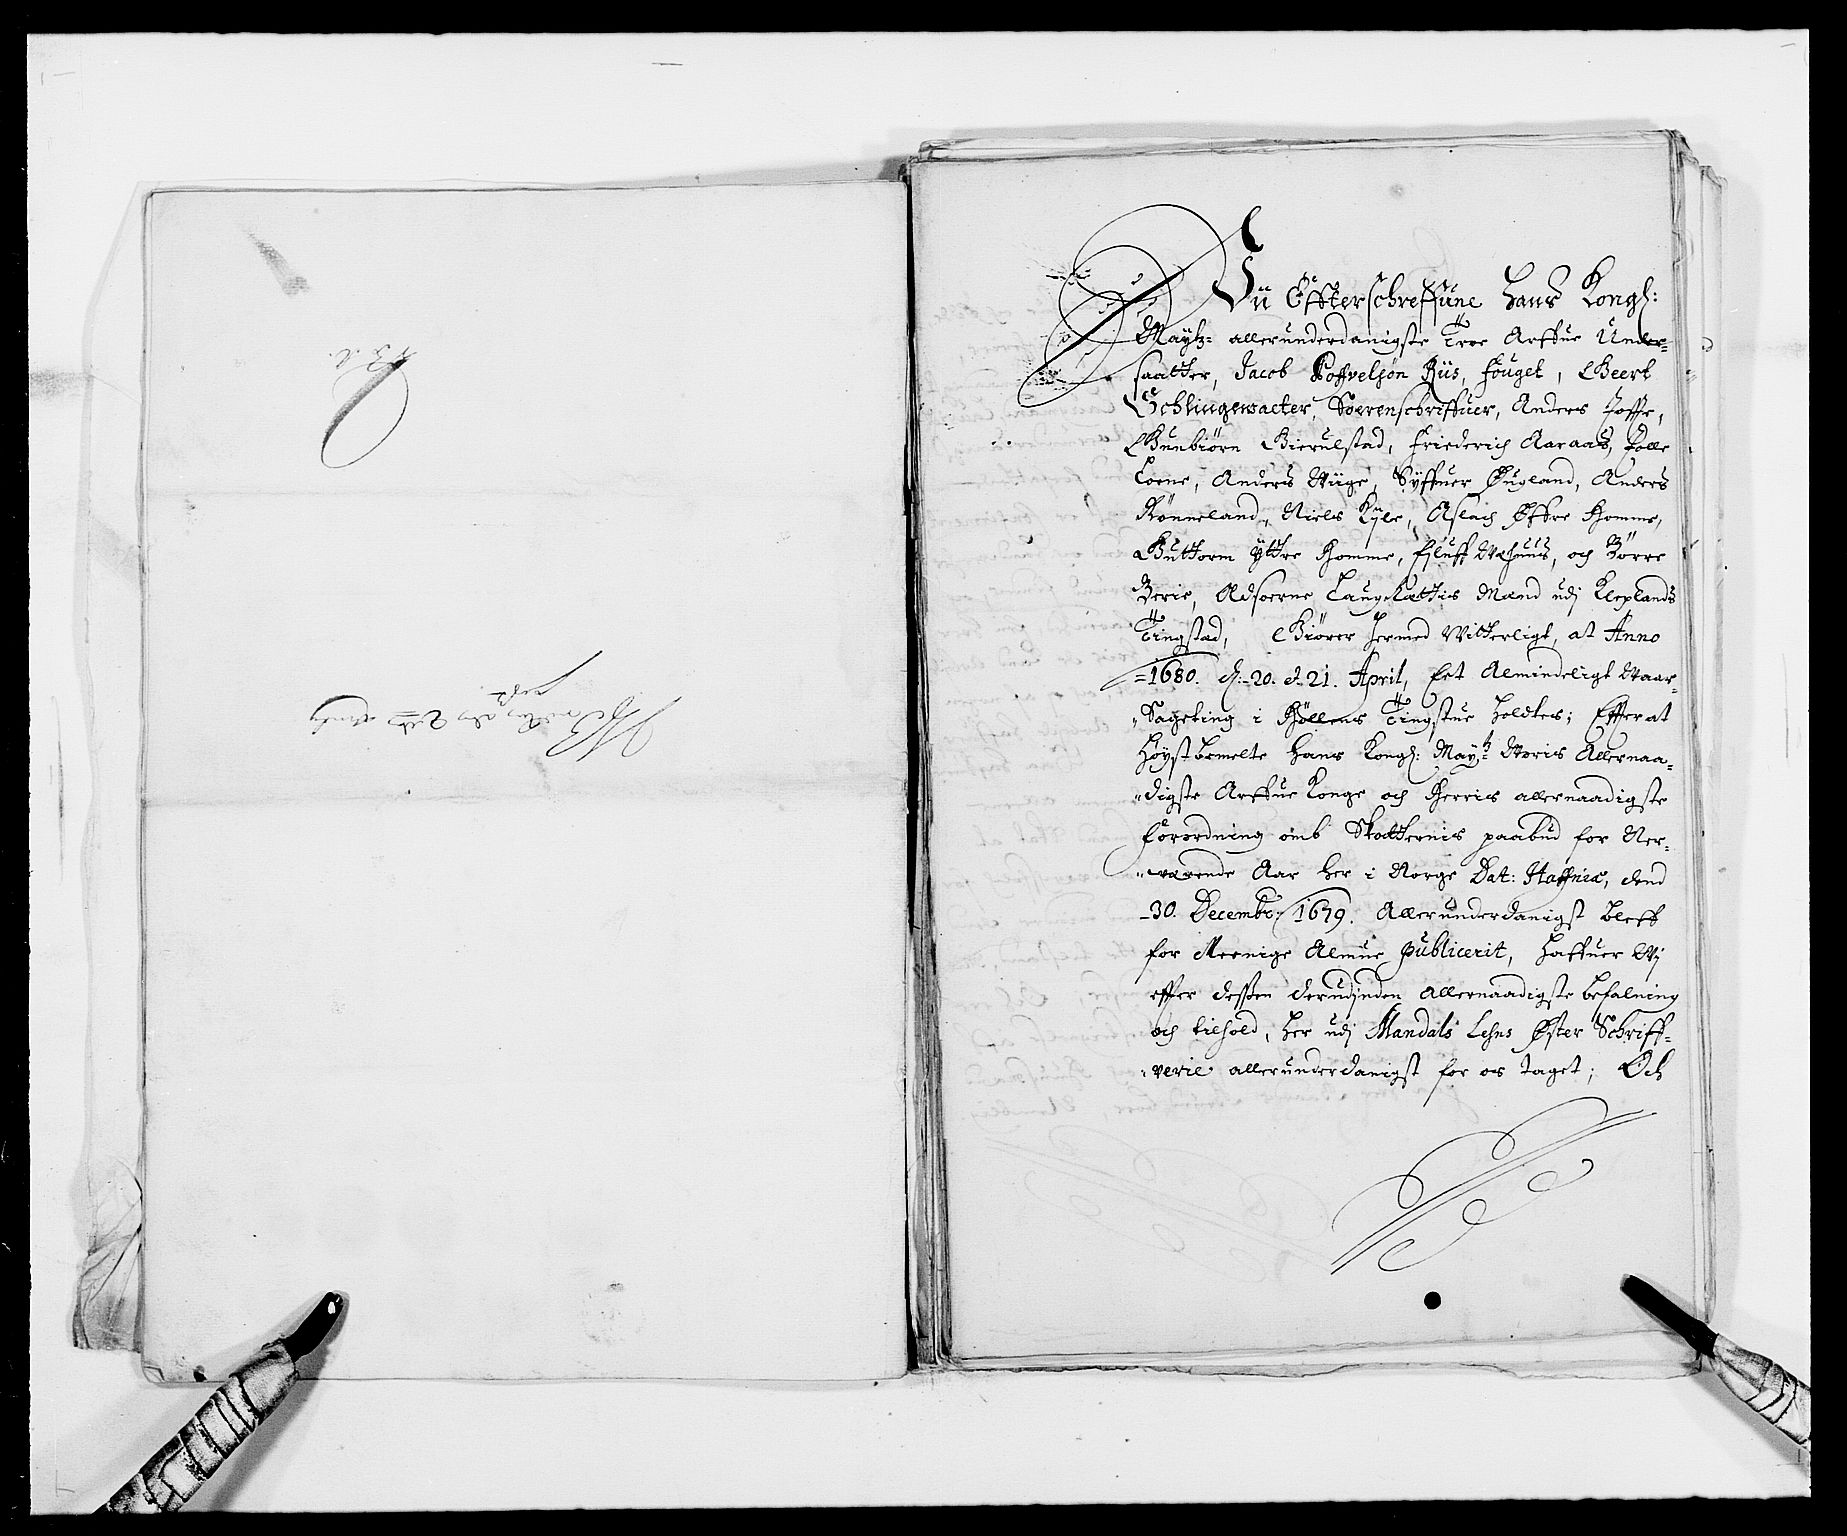 Vii Effterschreffüne Hans Kongl:
Maytz: allerunderdanigste Troe Arffue Under-
saatter, Jacob Poffvelsøn Riis, fouget, Geert
Schlingewaeter, Sorrenschriffuer, Anders Joffe,
Gunbiørn Bierulstad, Friederich Aaraas, Palle
Loene, Anders Wiige, Syffuer Øugland, Anders
Rønneland, Niels Kyle, Aslach Øffre Homme,
Guttorm Yttre Homme, och Børre
Berie, Edsoerne Laugrættis Mænd udj Kleplands
Tingstad, Giører hermed Witterligt, at Anno
=1680. d: 20. & 21. April, Eet Almindeligt Waar-
"Sageting i Høllens Tingstue holdtes; Effter at
Høystbemelte Hans Kongl: Maytz: Woris Allernaa-
"digste Arffue Konge och Herris allernaadigste
Forordning omb Skatternis paabud for Ner-
"værende Aar her i Norge Dat: Haffniæ, dend
-30. Decembr: 1679. Allerunderdanigst bleff
for Meenige Almue publicerit, Haffuer Wj
effter dessen derudjnden Allernaadigste befalning
och tilhold, her udj Mandals Lehns Øster Schriff-
"verie allerunderdanigst for os taget; Och